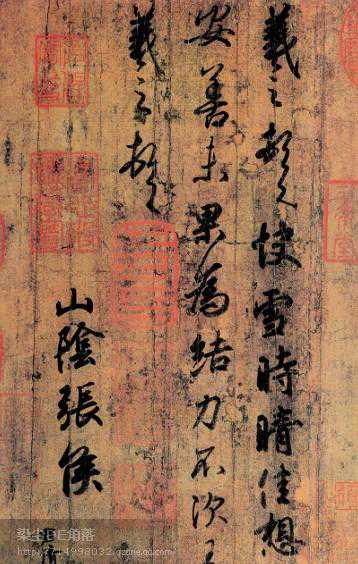 羲之頓首快雪時晴佳想
安善未果為結力不次王
羲之頓首
山陰張侯
染尘DE角落
http://7714998032.qzone.qq.com